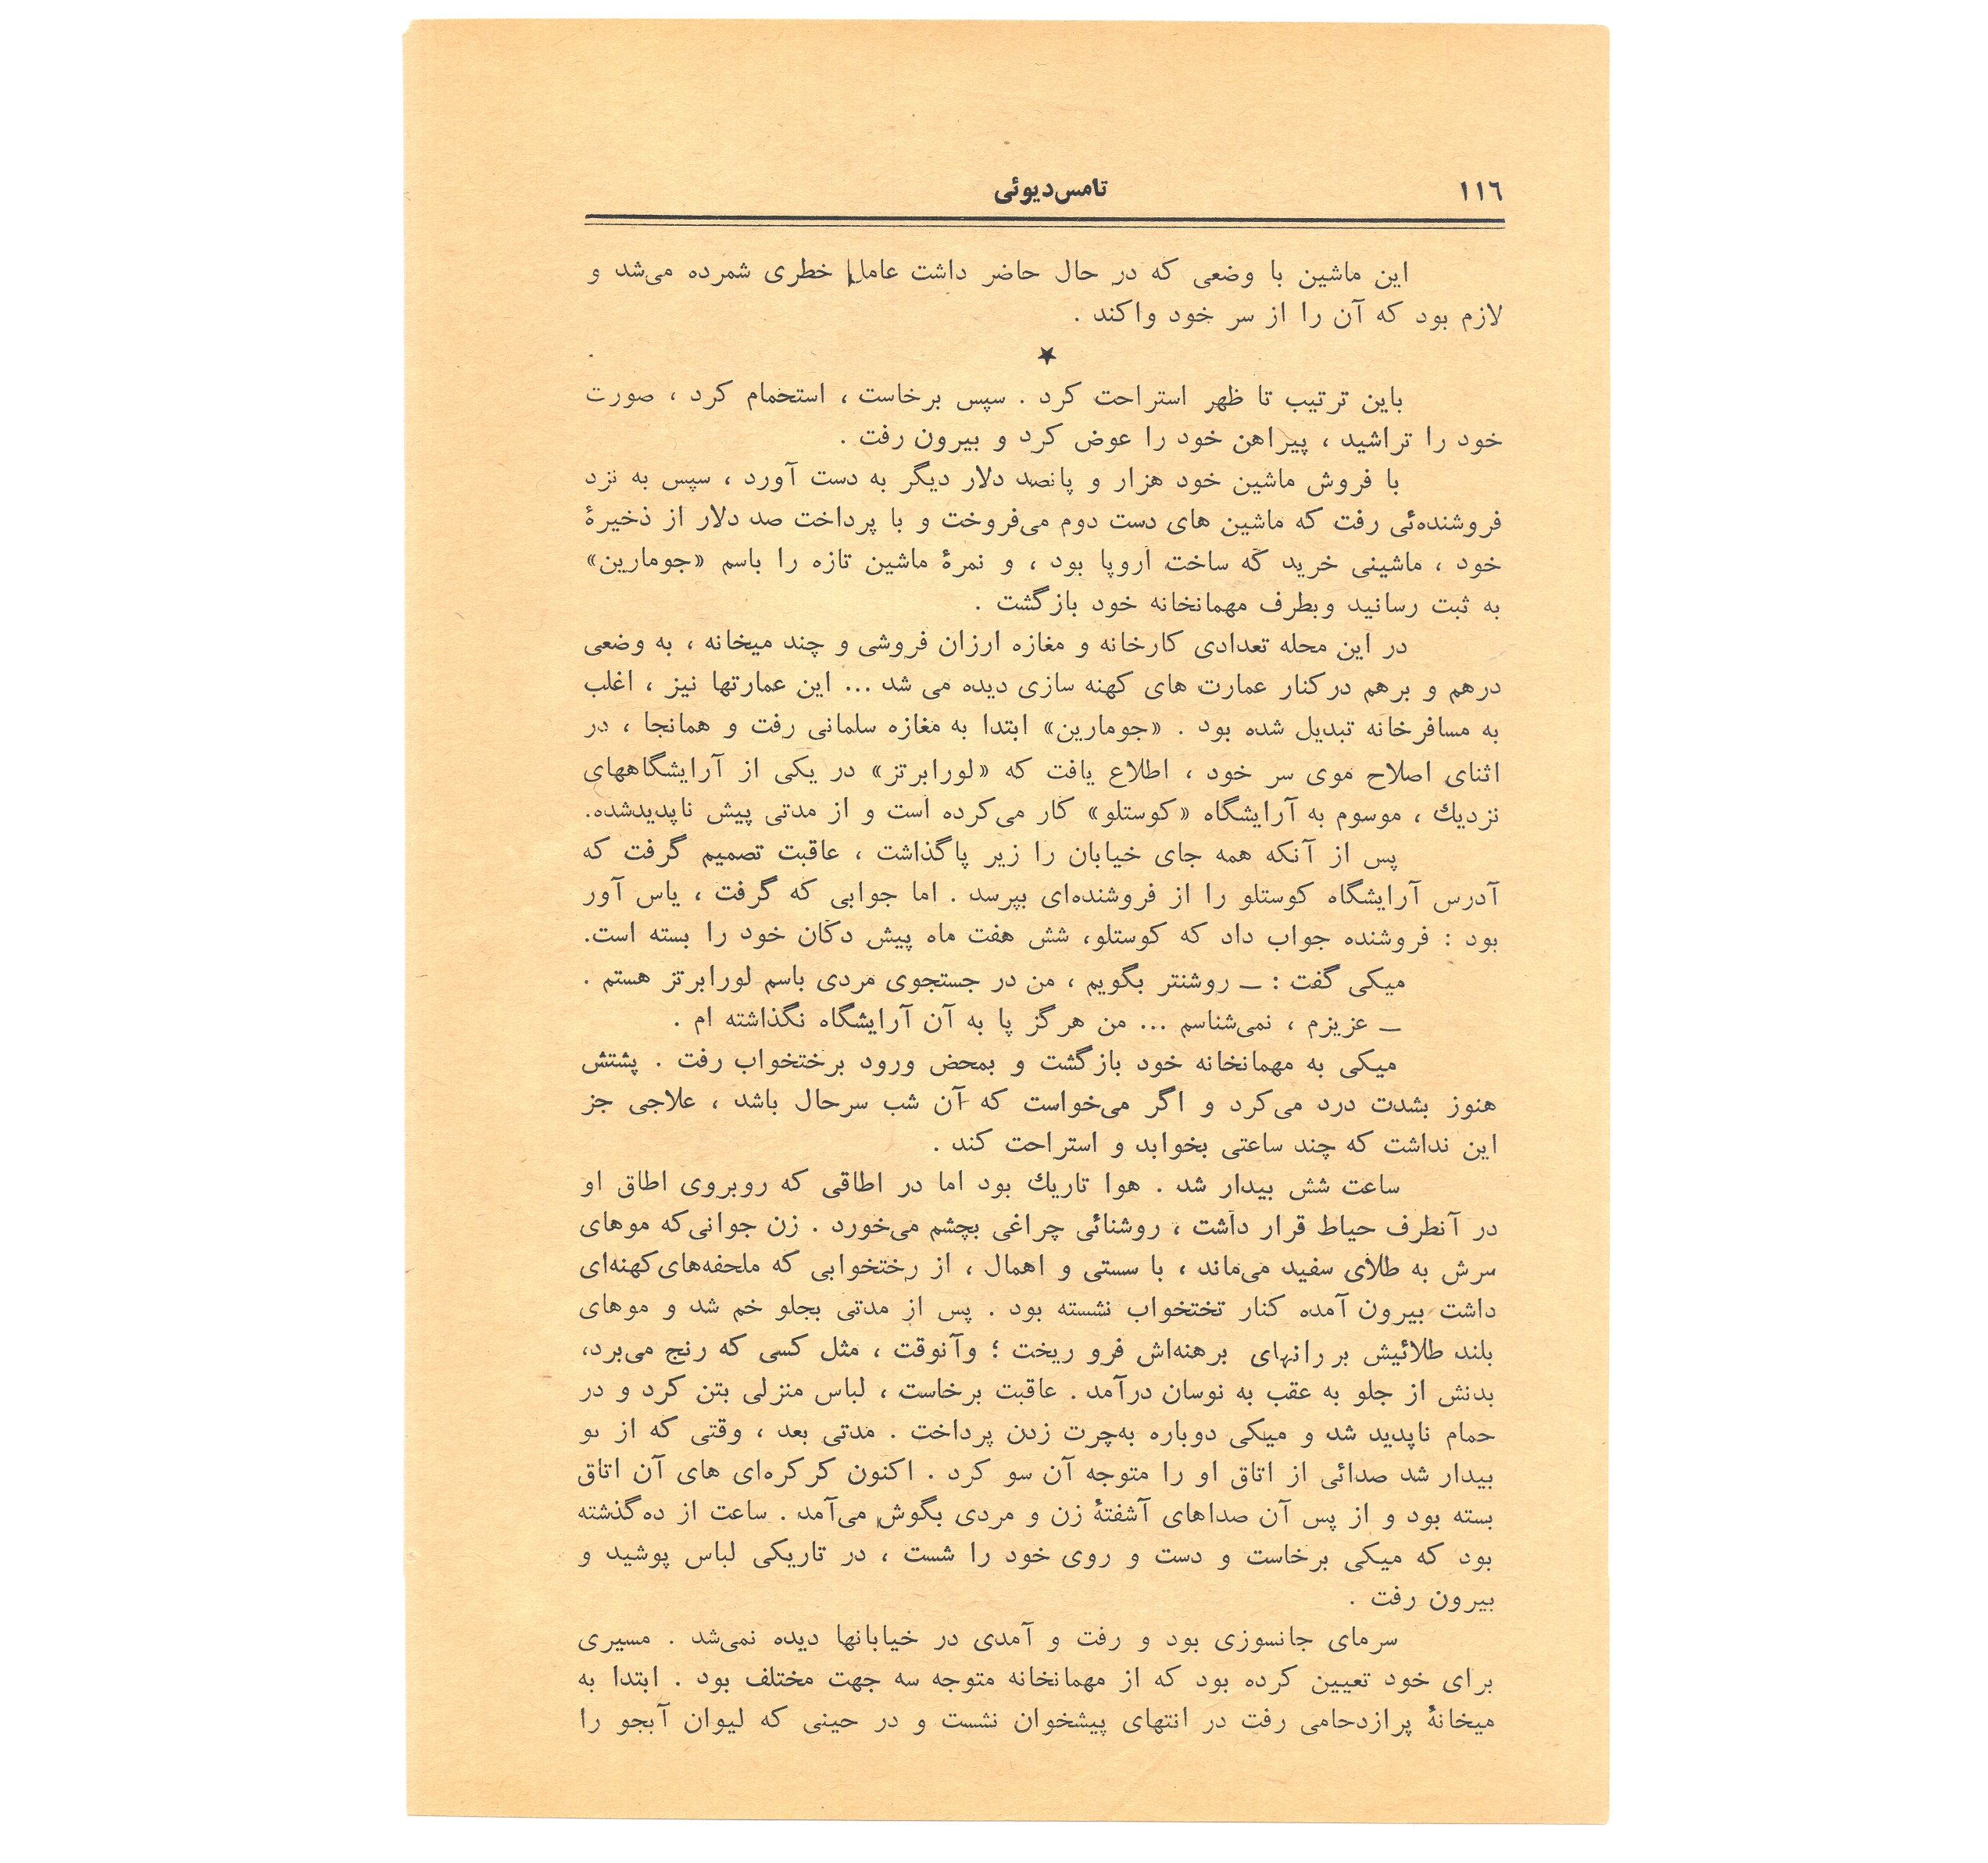 ١١٦
تامس‌دیوئی
این ماشین با وضعی که در حال حاضر داشت عامل خطری شمرده می‌شد و
لازم بود که آن را از سر خود واکند .
★
باین ترتیب تا ظهر استراحت کرد . سپس برخاست ، استحمام کرد ، صورت
خود را تراشید ، پیراهن خود را عوض کرد و بیرون رفت .
با فروش ماشین خود هزار و پانصد دلار دیگر به دست آورد ، سپس به نزد
فروشنده‌ئی رفت که ماشین های دست دوم می‌فروخت و با پرداخت صد دلار از ذخیرهٔ
خود ، ماشینی خرید که ساخت اروپا بود ، و نمرهٔ ماشین تازه را باسم «جومارین»
به ثبت رسانید وبطرف مهمانخانه خود بازگشت .
در این محله تعدادی کارخانه و مغازه ارزان فروشی و چند میخانه ، به وضعی
درهم و برهم درکنار عمارت های کهنه سازی دیده می شد ... این عمارتها نیز ، اغلب
به مسافرخانه تبدیل شده بود . «جومارین» ابتدا به مغازه سلمانی رفت و همانجا ، در
اثنای اصلاح موی سر خود ، اطلاع یافت که «لورابرتز» در یکی از آرایشگاههای
نزدیك ، موسوم به آرایشگاه «کوستلو» کار می‌کرده است و از مدتی پیش ناپدیدشده.
پس از آنکه همه جای خیابان را زیر پاگذاشت ، عاقبت تصمیم گرفت که
آدرس آرایشگاه کوستلو را از فروشنده‌ای بپرسد . اما جوابی که گرفت ، یاس آور
بود : فروشنده جواب داد که کوستلو، شش هفت ماه پیش دکان خود را بسته است.
میکی گفت : ــ روشنتر بگویم ، من در جستجوی مردی باسم لورابرتز هستم .
ــ عزیزم ، نمی‌شناسم ... من هرگز پا به آن آرایشگاه نگذاشته ام .
میکی به مهمانخانه خود بازگشت و بمحض ورود برختخواب رفت . پشتش
هنوز بشدت درد می‌کرد و اگر می‌خواست که آن شب سرحال باشد ، علاجی جز
این نداشت که چند ساعتی بخوابد و استراحت کند .
ساعت شش بیدار شد . هوا تاریك بود اما در اطاقی که روبروی اطاق او
در آنطرف حیاط قرار داشت ، روشنائی چراغی بچشم می‌خورد . زن جوانی‌که موهای
سرش به طلای سفید می‌ماند ، با سستی و اهمال ، از رختخوابی که ملحفه‌های‌کهنه‌ای
داشت بیرون آمده کنار تختخواب نشسته بود . پس از مدتی بجلو خم شد و موهای
بلند طلائیش بر رانهای برهنه‌اش فرو ریخت ؛ وآنوقت ، مثل کسی که رنج می‌برد،
بدنش از جلو به عقب به نوسان درآمد . عاقبت برخاست ، لباس منزلی بتن کرد و در
حمام ناپدید شد و میکی دوباره به‌چرت زدن پرداخت . مدتی بعد ، وقتی که از نو
بیدار شد صدائی از اتاق او را متوجه آن سو کرد . اکنون کرکره‌ای های آن اتاق
بسته بود و از پس آن صداهای آشفتهٔ زن و مردی بگوش می‌آمد . ساعت از ده گذشته
بود که میکی برخاست و دست و روی خود را شست ، در تاریکی لباس پوشید و
بیرون رفت .
سرمای جانسوزی بود و رفت و آمدی در خیابانها دیده نمی‌شد . مسیری
برای خود تعیین کرده بود که از مهمانخانه متوجه سه جهت مختلف بود . ابتدا به
میخانهٔ پرازدحامی رفت در انتهای پیشخوان نشست و در حینی که لیوان آبجو را